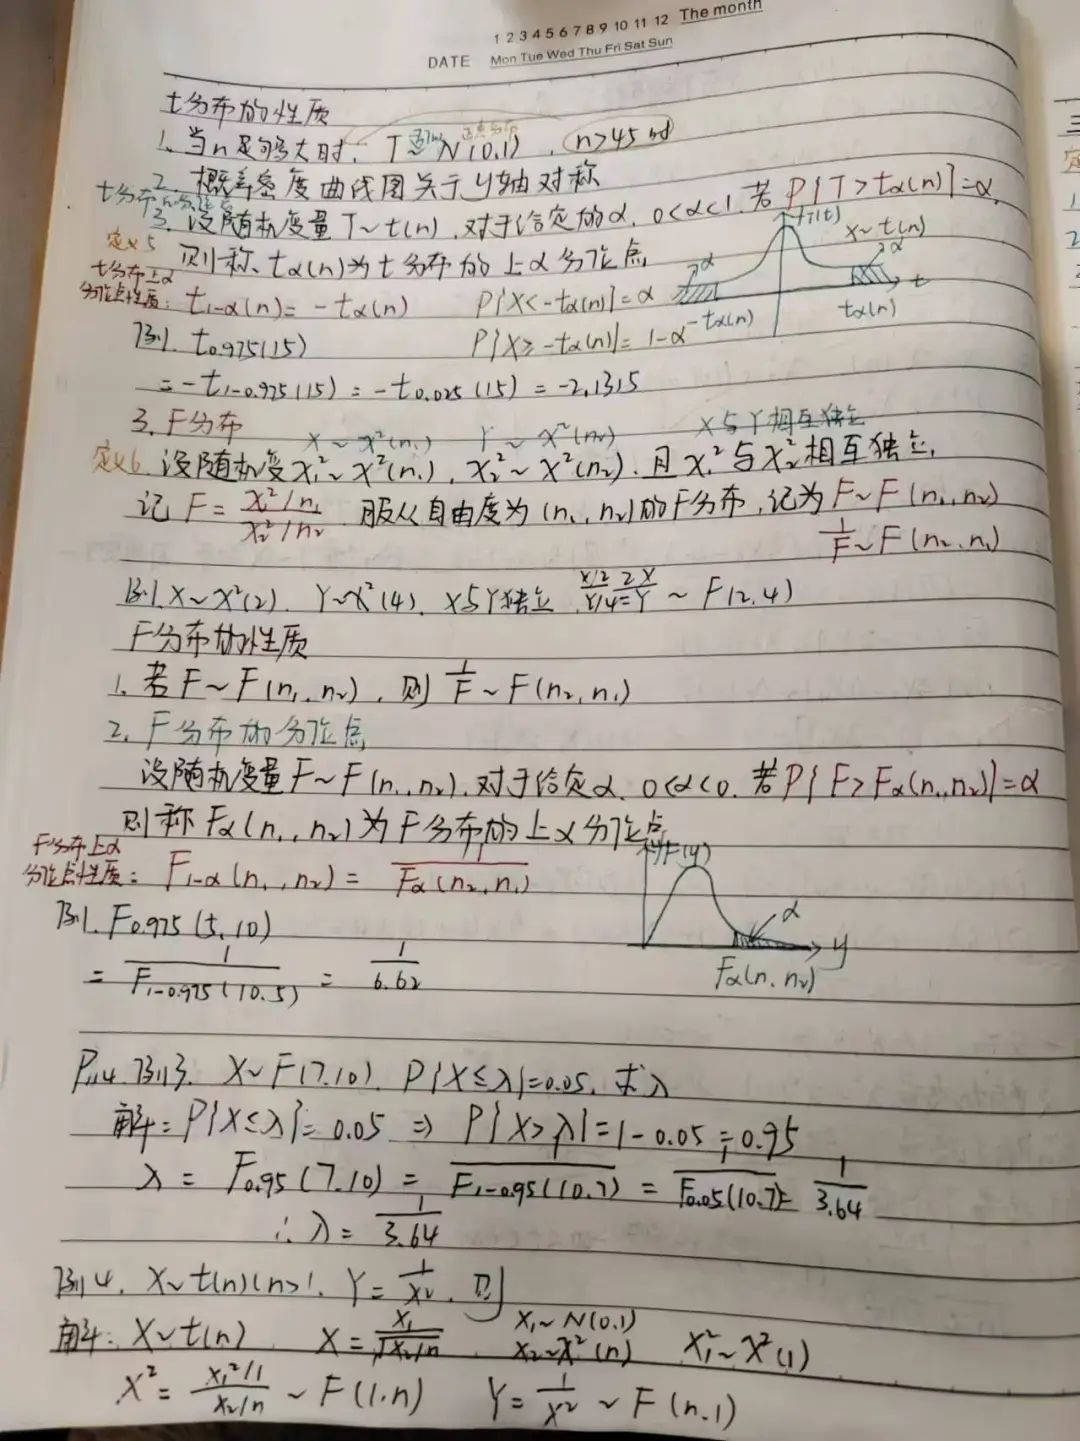 1 2 3 4 5 6 7 8 9 10 11 12 The month
DATE Mon Tue Wed Thu Fri Sat Sun
t分布的性质
1. 当n足够大时, T ~ N(0,1), n>45时
近似 正态分布
2. 概率密度曲线图关于y轴对称
3. 设随机变量T~t(n), 对于给定的α, 0<α<1, 若P{T>tα(n)}=α,
定义5 则称, tα(n)为t分布的上α分位点
fT(t) X~t(n) α α t
-tα(n) tα(n)
t分布上α
分位点性质: t1-α(n)= -tα(n) P{X<-tα(n)}=α
例. t0.975(15) P{X≥-tα(n)}=1-α
= -t1-0.975(15) = -t0.025(15) = -2.1315
3. F分布
X~χ²(n1) Y~χ²(n2) X与Y相互独立
定义6. 设随机变χ1²~χ²(n1), χ2²~χ²(n2). 且χ1²与χ2²相互独立,
记 F = (χ1²/n1)/(χ2²/n2) 服从自由度为(n1, n2)的F分布, 记为F~F(n1, n2)
1/F ~ F(n2, n1)
例. X~χ²(2), Y~χ²(4), X与Y独立 (X/2)/(Y/4) = 2X/Y ~ F(2,4)
F分布的性质
1. 若F~F(n1, n2), 则 1/F ~ F(n2, n1)
2. F分布的分位点
设随机变量F~F(n1, n2), 对于给定α, 0<α<0, 若P{F>Fα(n1, n2)}=α
则称Fα(n1, n2)为F分布的上α分位点
F分布上α
分位点性质: F1-α(n1, n2) = 1/Fα(n2, n1)
fF(y) α y
Fα(n1, n2)
例. F0.975(5, 10)
= 1/F1-0.975(10, 5) = 1/6.62
P114 例3. X~F(7,10), P{X≤λ}=0.05, 求λ
解: P{X≤λ}=0.05 ⇒ P{X>λ}=1-0.05=0.95
λ = F0.95(7,10) = 1/F1-0.95(10,7) = 1/F0.05(10,7) = 1/3.64
∴ λ = 1/3.64
例4, X~t(n)(n>1, Y=1/X², 则
解: X~t(n) X = X1/√(X2/n) X1~N(0,1) X2~χ²(n) X1²~χ²(1)
X² = (X1²/1)/(X2/n) ~ F(1,n) Y = 1/X² ~ F(n,1)